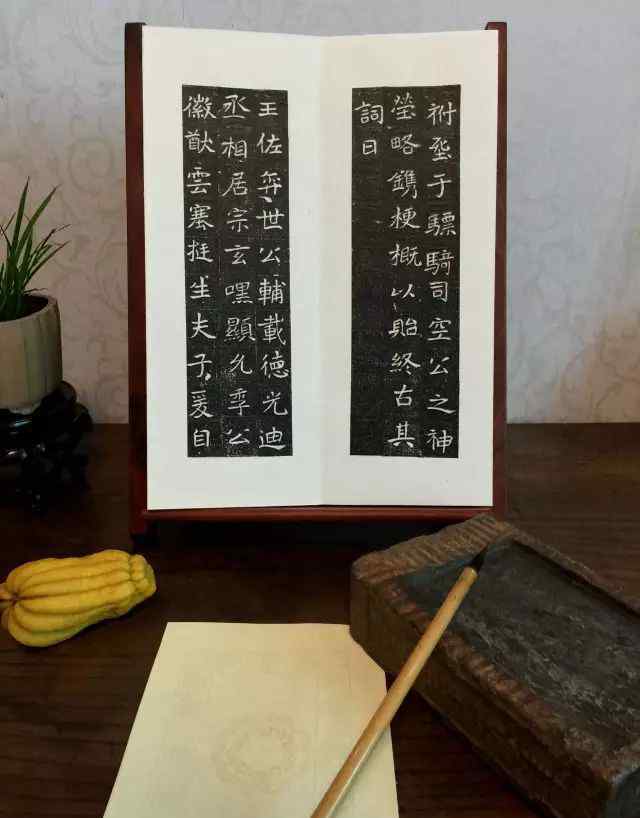 祔于驃騎司空公之神
塋略鐫梗概以貽終古其
詞曰
王佐弈世公輔載德光迪
丞相居宗玄嘿顯允季公
徽猷雲塞挺生夫子爰自